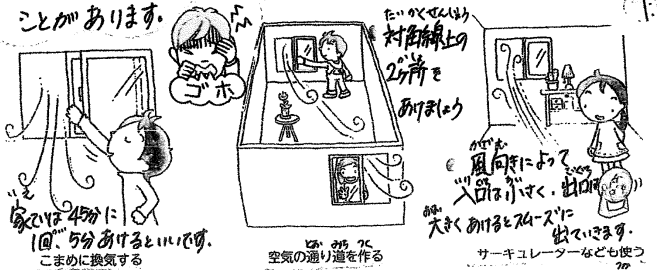 ことが あります。
ゴホ
家では 45分に
1回、5分あけるといいです。
こまめに換気する
たいかくせんじょう
対角線上の
2ヶ所を
あけましょう
空気の通り道を作る
風向きによって
入口は小さく、出口は
大きくあけるとスムーズに
出ていきます。
サーキュレーターなども使う